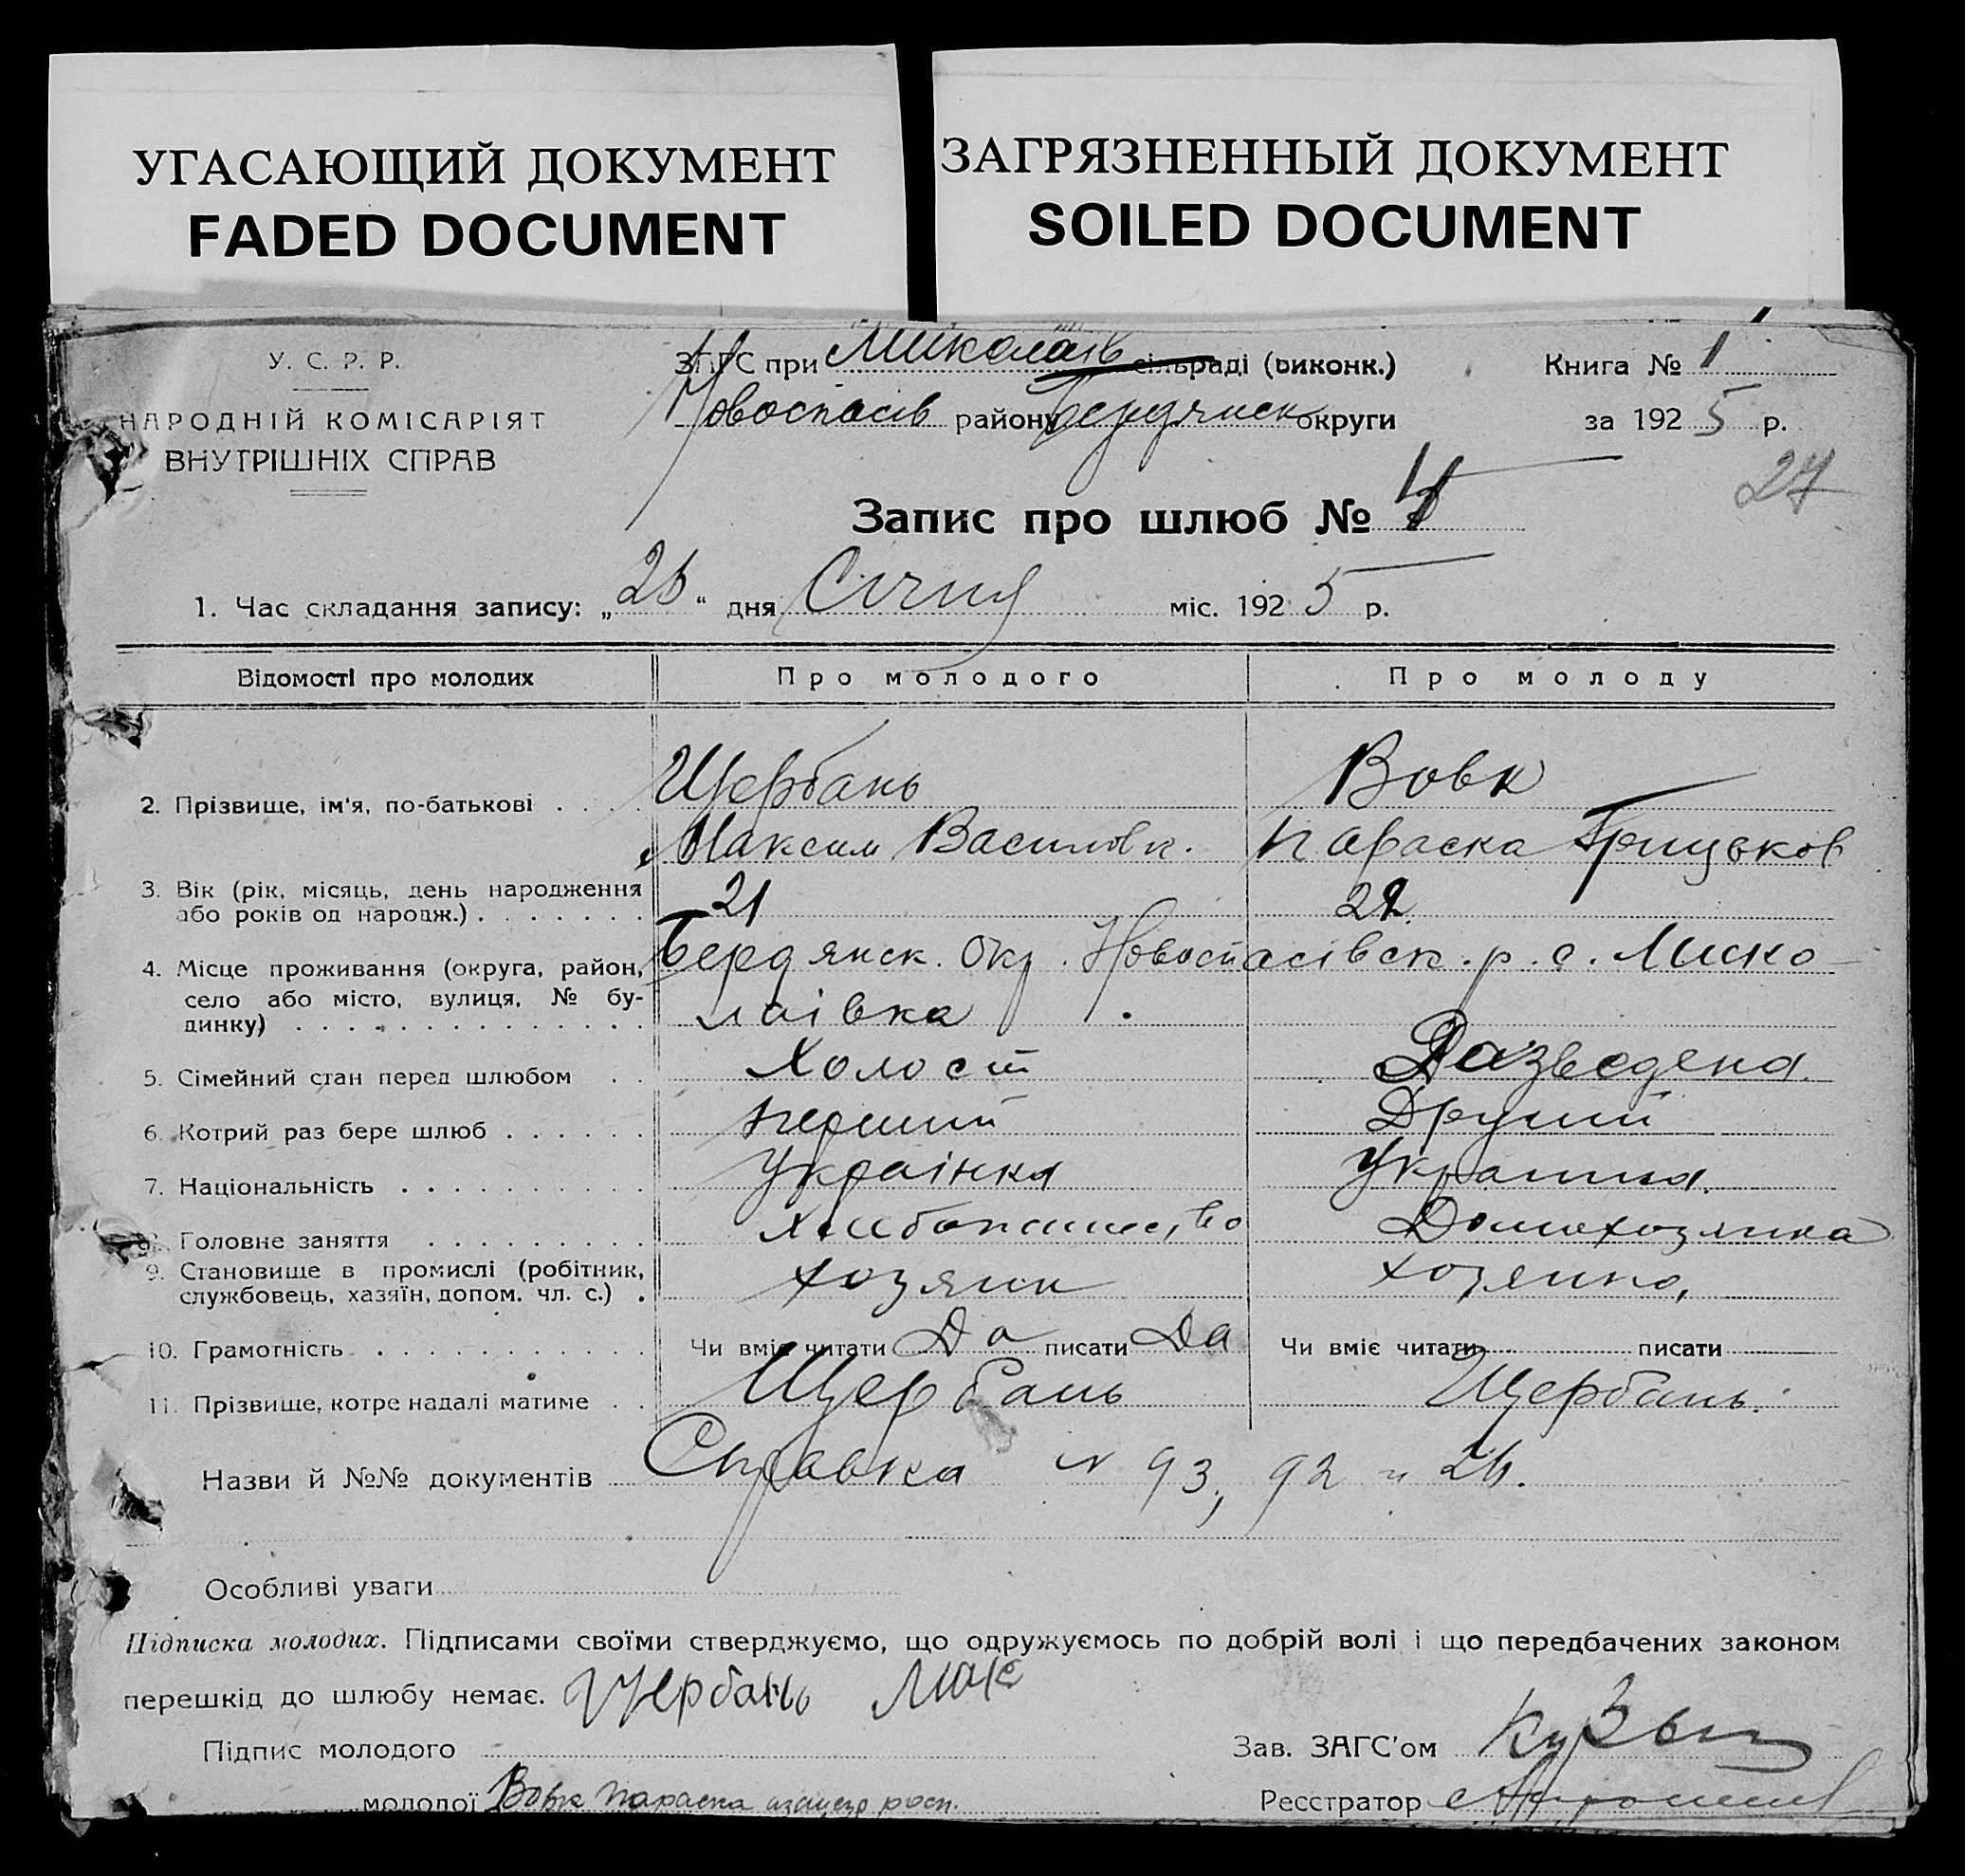 УГАСАЮЩИЙ ДОКУМЕНТ
FADED DOCUMENT
ЗАГРЯЗНЕННЫЙ ДОКУМЕНТ
SOILED DOCUMENT
У. С. Р. Р.
НАРОДНІЙ КОМІСАРІЯТ
ВНУТРІШНІХ СПРАВ
ЗАГС при Миколаїв сільраді (виконк.)
Новоспасів району Бердянск округи
Книга № 1
за 1925 р.
27
Запис про шлюб №
1. Час складання запису: „26“ дня Січня міс. 1925 р.
Відомості про молодих Про молодого Про молоду
2. Прізвище, ім'я, по-батькові . . . . Щербань Вовк
Максим Параска Грицьков
3. Вік (рік, місяць, день народження
або років од народж.) . . . . . . . 21 22
4. Місце проживання (округа, район,
село або місто, вулиця, № бу-
динку) . . . . . . . . . . . . . .
Бердянск. Окр. Новоспасівск. р. с. Мико-
лаівка
5. Сімейний стан перед шлюбом . . Холост Разведена
6. Котрий раз бере шлюб . . . . . . перший Другий
7. Національність . . . . . . . . . . Українка
8. Головне заняття . . . . . . . . . Домохозяйка
9. Становище в промислі (робітник,
службовець, хазяїн, допом. чл. с.) . хозяин хозяйка,
10. Грамотність . . . . . . . . . . . Чи вміє читати Да писати Да Чи вміє читати писати
11. Прізвище, котре надалі матиме . . Щербань Щербань.
Назви й №№ документів Справка № 93, 92 и 26.
Особливі уваги
Підписка молодих. Підписами своїми стверджуємо, що одружуємось по добрій волі і що передбачених законом
перешкід до шлюбу немає. Щербань Мак
Підпис молодого
Зав. ЗАГС'ом
молодої Вовк Параска
Реєстратор